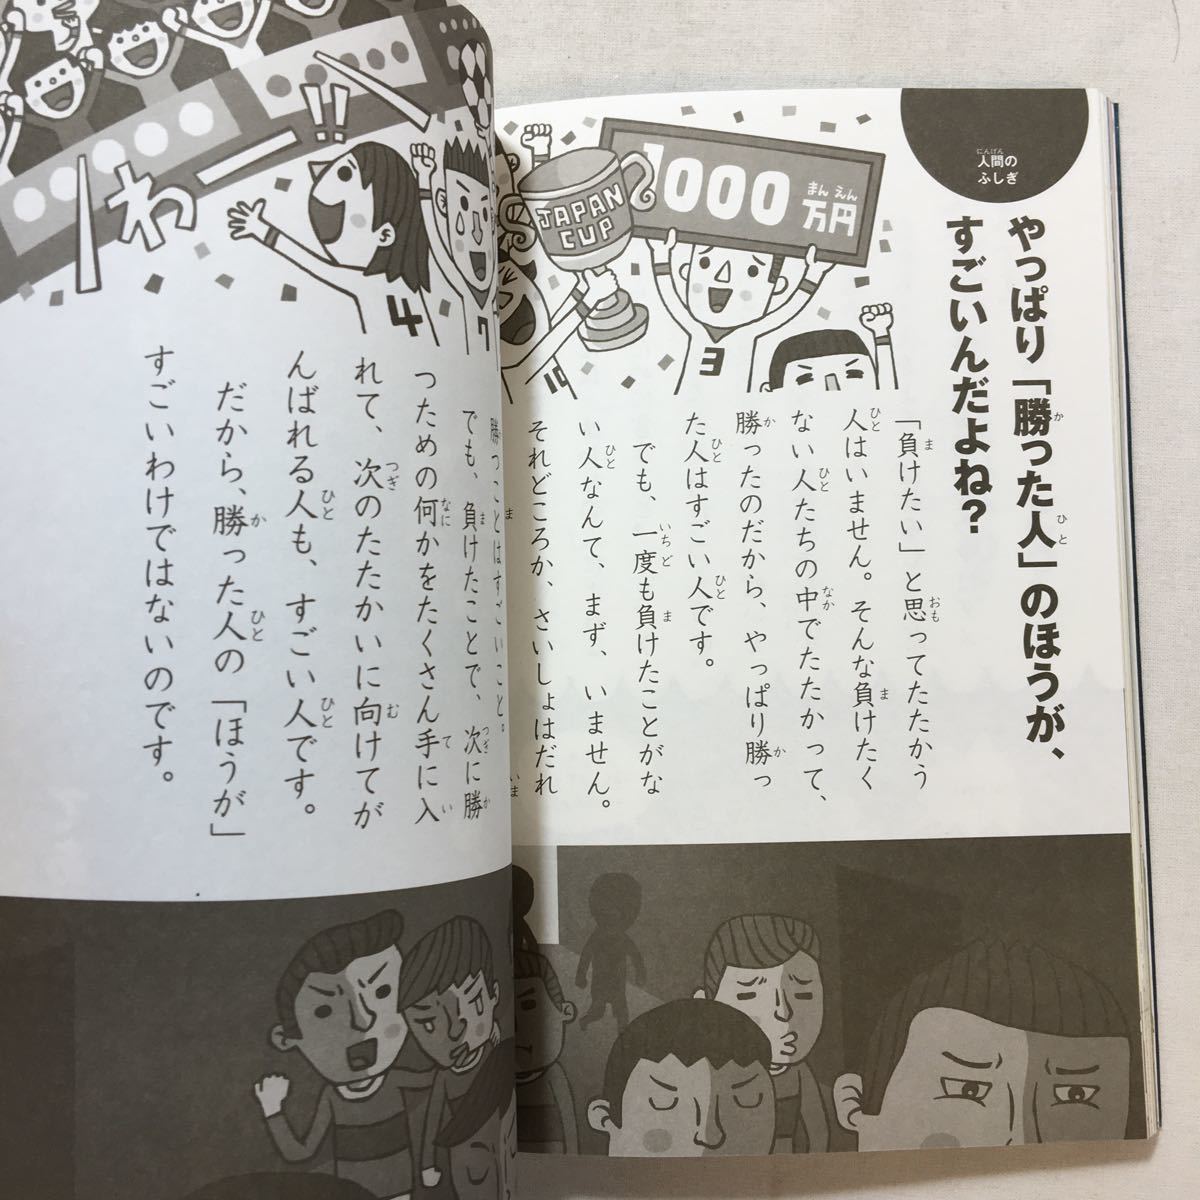 人間の
ふしぎ
やっぱり「勝った人」のほうが、
すごいんだよね？
1000
万円
JAPAN
CUP
3
「負けたい」と思ってたたかう
人はいません。そんな負けたく
ない人たちの中でたたかって、
勝ったのだから、やっぱり勝っ
た人はすごい人です。
でも、一度も負けたことがな
い人なんて、まず、いません。
それどころか、さいしょはだれ
わー!!
4
7
勝つことはすごいこと。
でも、負けたことで、次に勝
つための何かをたくさん手に入
れて、次のたたかいに向けてが
んばれる人も、すごい人です。
だから、勝った人の「ほうが」
すごいわけではないのです。